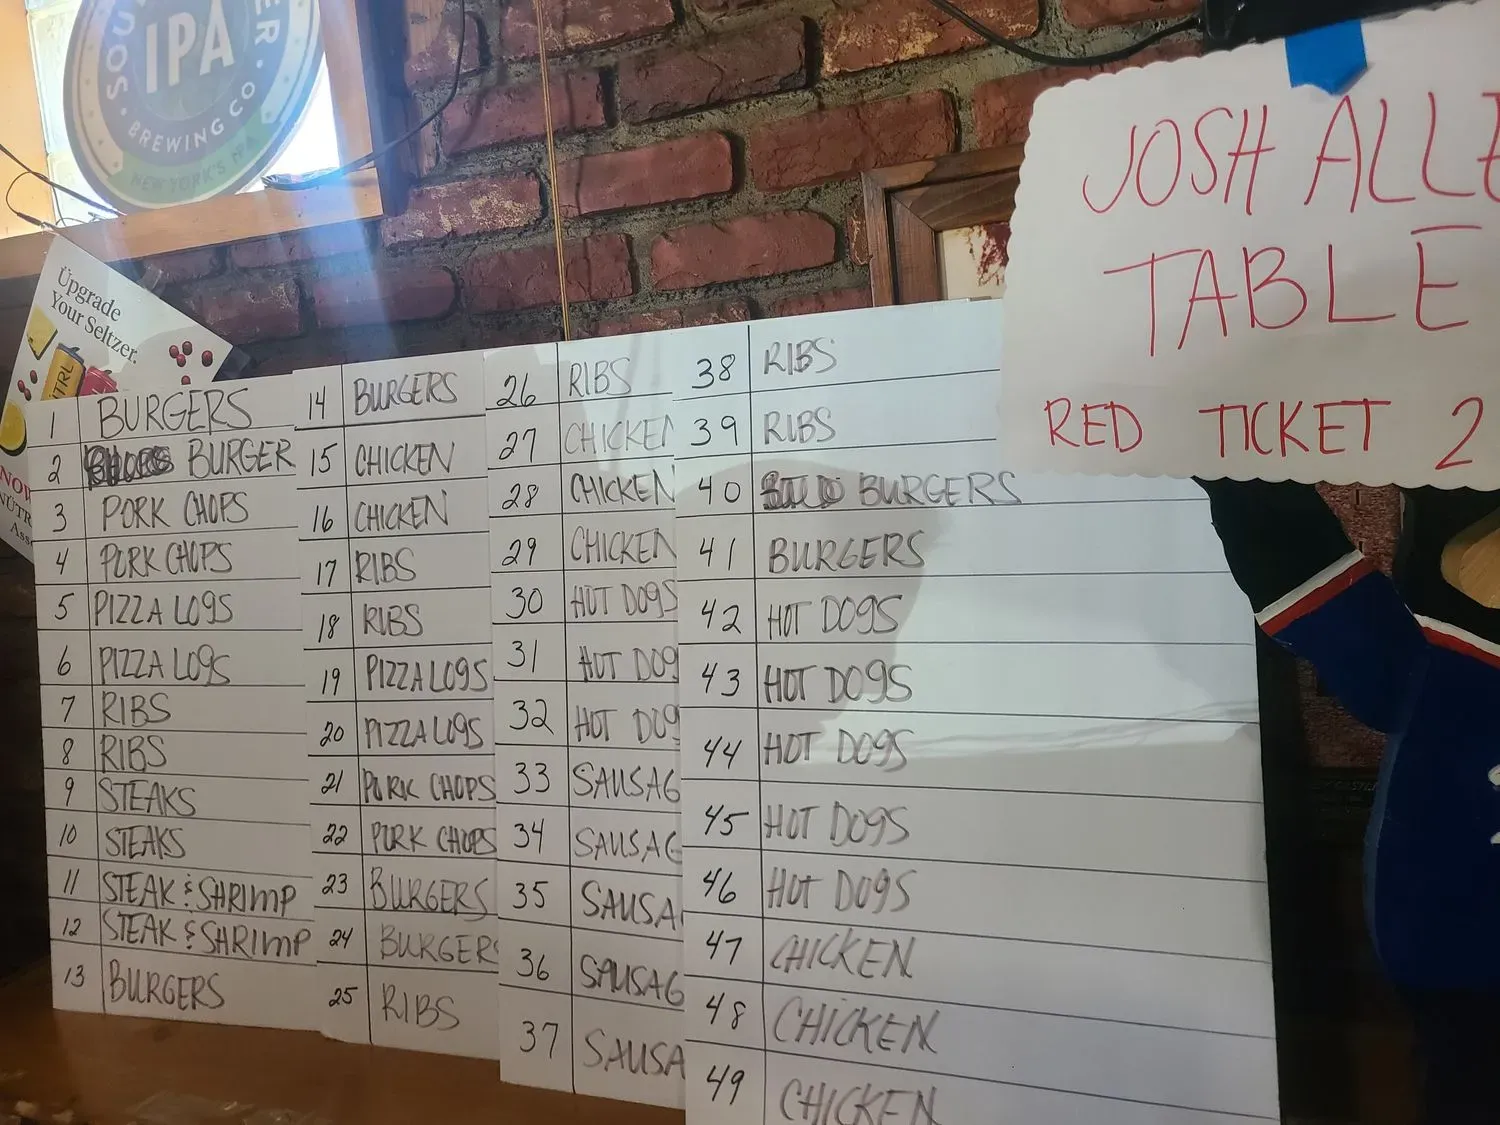 IPA
BREWING CO.
NEW YORK'S IPA
Upgrade
Your Seltzer.
JOSH ALLE
TABLE
RED TICKET 2
1 BURGERS
2 BURGER
3 PORK CHOPS
4 PORK CHOPS
5 PIZZA LOGS
6 PIZZA LOGS
7 RIBS
8 RIBS
9 STEAKS
10 STEAKS
11 STEAK & SHRIMP
12 STEAK & SHRIMP
13 BURGERS
14 BURGERS
15 CHICKEN
16 CHICKEN
17 RIBS
18 RIBS
19 PIZZA LOGS
20 PIZZA LOGS
21 PORK CHOPS
22 PORK CHOPS
23 BURGERS
24 BURGERS
25 RIBS
26 RIBS
27 CHICKEN
28 CHICKEN
29 CHICKEN
30 HOT DOGS
31 HOT DOG
32 HOT DOG
33 SAUSAG
34 SAUSAG
35 SAUSA
36 SAUSAG
37 SAUSA
38 RIBS
39 RIBS
40 BURGERS
41 BURGERS
42 HOT DOGS
43 HOT DOGS
44 HOT DOGS
45 HOT DOGS
46 HOT DOGS
47 CHICKEN
48 CHICKEN
49 CHICKEN